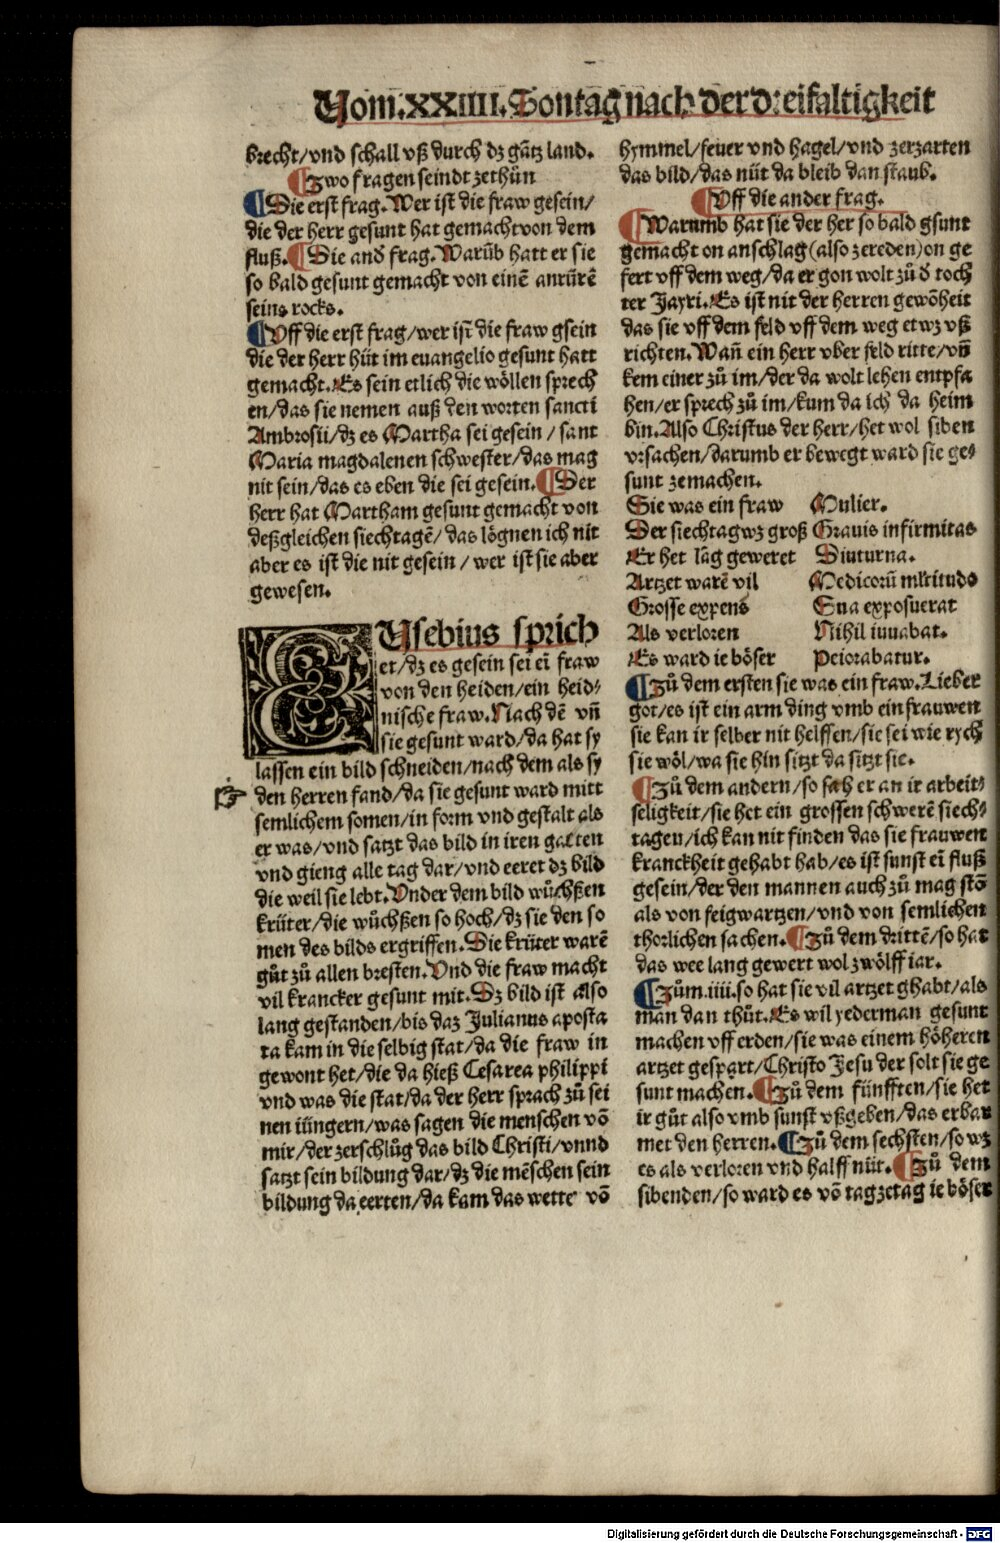 Vom.XXIIII.Sontag nach der dreifaltigkeit
brecht/vnd schall vß durch dz gãtz land.
¶Zwo fragen seindt zethůn
¶Die erst frag.Wer ist die fraw gesein/
die der herr gesunt hat gemacht von dem
fluß.¶Die and̃ frag.Warũb hatt er sie
so bald gesunt gemacht von einẽ anrürẽ
seins rocks.
¶Vff die erst frag/wer ist die fraw gsein
die der herr hüt im euangelio gesunt hatt
gemacht.Es sein etlich die wöllen sprech
en/das sie nemen auß den worten sancti
Ambrosii/dz es Martha sei gesein/sant
Maria magdalenen schwester/das mag
nit sein/das es eben die sei gesein.¶Der
herr hat Martham gesunt gemacht von
deßgleichen siechtagẽ/das lögnen ich nit
aber es ist die nit gesein/wer ist sie aber
gewesen.
EUsebius sprich
et/dz es gesein sei eĩ fraw
von den heiden/ein heid⸗
nische fraw.Nach dẽ vñ
sie gesunt ward/da hat sy
lassen ein bild schneiden/nach dem als sy
☞ den herren fand/da sie gesunt ward mitt
semlichem somen/in form vnd gestalt als
er was/vnd satzt das bild in iren garten
vnd gieng alle tag dar/vnd eeret dz bild
die weil sie lebt.Vnder dem bild wůchßen
krüter/die wůchßen so hoch/dz sie den so
men des bilds ergriffen.Die krüter warẽ
gůt zů allen bresten.Vnd die fraw macht
vil krancker gesunt mit.Dz bild ist also
lang gestanden/bis daz Julianus aposta
ta kam in die selbig stat/da die fraw in
gewont het/die da hieß Cesarea philippi
vnd was die stat/da der herr sprach zů sei
nen iüngern/was sagen die menschen võ
mir/der zerschlůg das bild Christi/vnnd
satzt sein bildung dar/dz die mẽschen sein
bildung da eerten/da kam das wette võ
hymmel/feuer vnd hagel/vnd zerzarten
das bild/das nüt da bleib dan staub.
¶Vff die ander frag.
¶Warumb hat sie der her so bald gsunt
gemacht on anschlag(also zereden)on ge
fert vff dem weg/da er gon wolt zů d̃ toch
ter Jayri.Es ist nit der herren gewõheit
das sie vff dem feld vff dem weg etwz vß
richten.Wañ ein herr vber feld ritte/vñ
kem einer zů im/der da wolt lehen entpfa
hen/er sprech zů im/kum da ich da heim
bin.Also Christus der herr/het wol siben
vrsachen/darumb er bewegt ward sie ge⸗
sunt zemachen.
Sie was ein fraw Mulier.
Der siechtag wz groß Grauis infirmitas
Er het lãg geweret Diuturna.
Artzet warẽ vil Medicorũ mltitudo
Grosse expens Sua exposuerat
Als verloren Nihil iuuabat.
Es ward ie böser Peiorabatur.
¶Zů dem ersten sie was ein fraw.Lieber
got/es ist ein arm ding vmb ein frauwen
sie kan ir selber nit helffen/sie sei wie rych
sie wöl/wa sie hin sitzt da sitzt sie.
¶Zů dem andern/so sah er an ir arbeit⸗
seligkeit/sie het ein grossen schwerẽ siech⸗
tagen/ich kan nit finden das sie frauwen
kranckheit gehabt hab/es ist sunst eĩ fluß
gesein/der den mannen auch zů mag stõ
als von feigwartzen/vnd von semlichen
thorlichen sachen.¶Zů dem drittẽ/so hat
das wee lang gewert wol zwölff iar.
¶Zům.iiii.so hat sie vil artzet ghabt/als
man dan thůt.Es wil yederman gesunt
machen vff erden/sie was einem höheren
artzet gespart/Christo Jesu der solt sie ge
sunt machen.¶Zů dem fünfften/sie het
ir gůt also vmb sunst vßgeben/das erbar
met den herren.¶Zů dem sechsten/so wz
es als verloren vnd halff nüt.¶Zů dem
sibenden/so ward es võ tag zetag ie böser
Digitalisierung gefördert durch die Deutsche Forschungsgemeinschaft - DFG